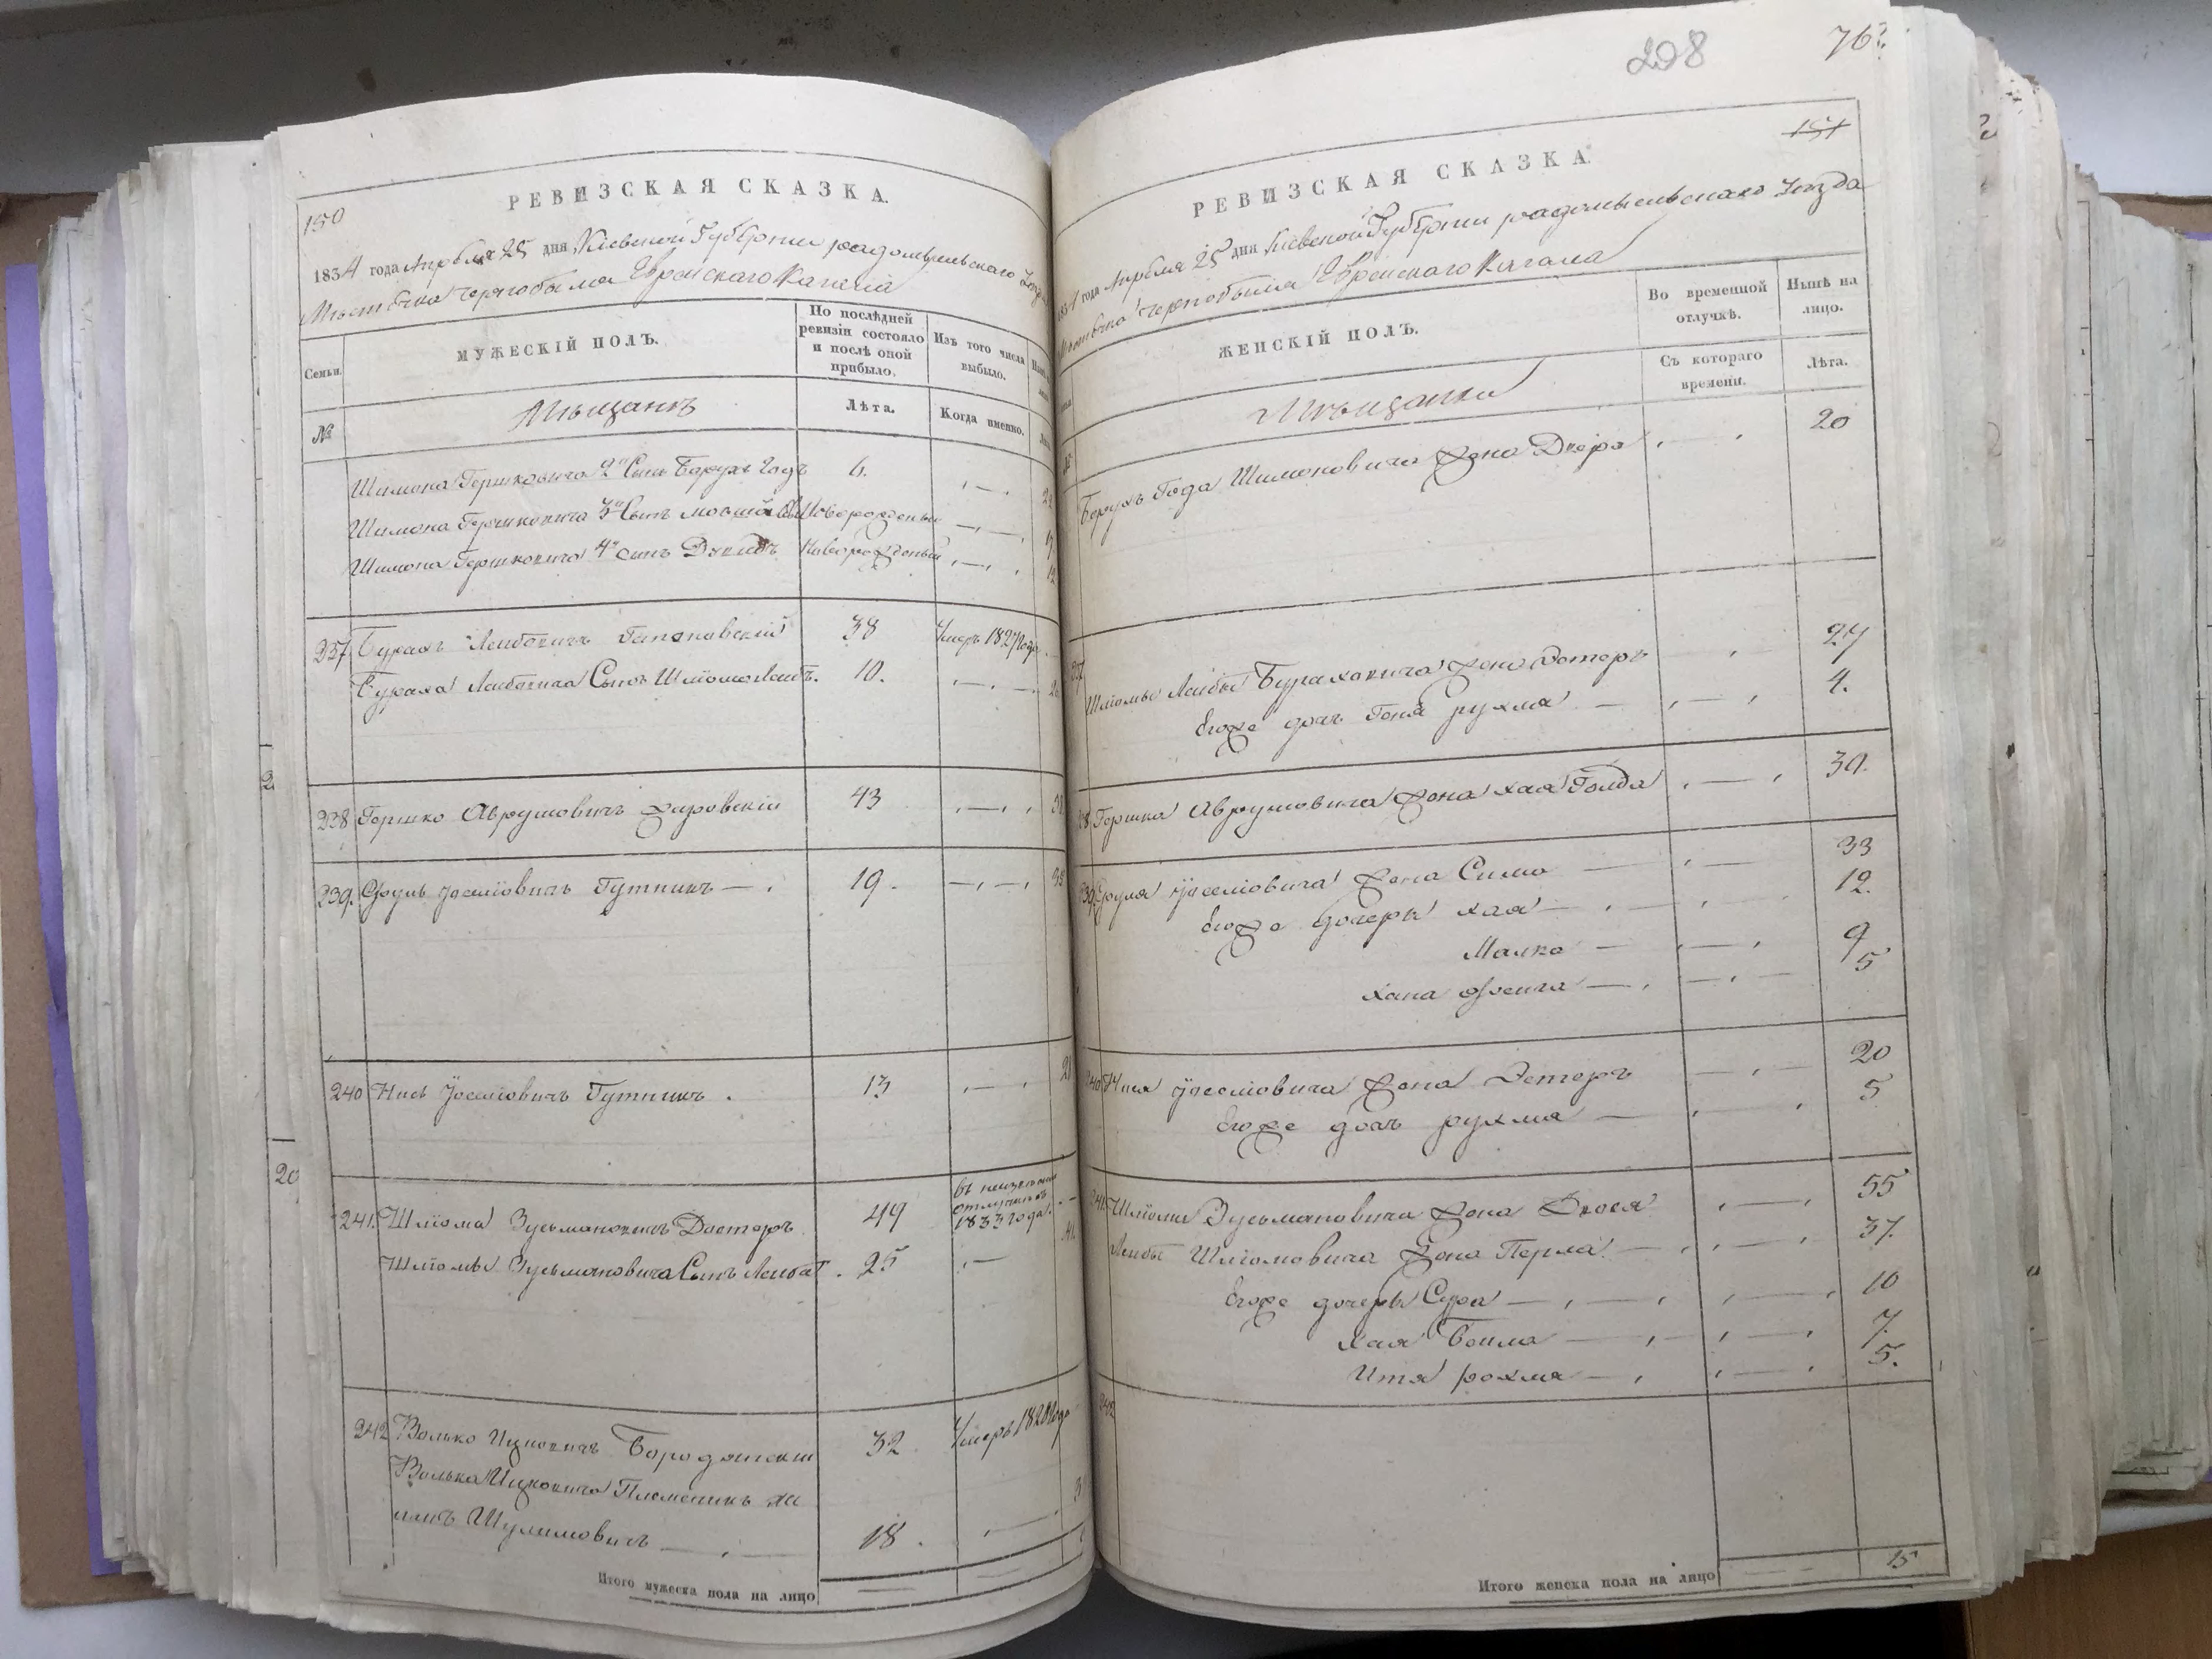 150
РЕВИЗСКАЯ СКАЗКА.
1834 года Апреля 25 дня Киевской Губернии радомысльского
Местечка Чернобыля Еврейскаго Кагала
Семьи.
МУЖЕСКІЙ ПОЛЪ.
По послѣдней ревизіи состояло и послѣ оной прибыло.
Изъ того числа выбыло.
№
Мещанъ
Лѣта.
Когда именно.
Шимона Гершковича 2й Сынъ Борухъ Годъ 6.
Шимона Гершковича 3й Сынъ Новорожденный
Шимона Гершковича 4й сынъ Новорожденный 12
237 Бурахъ Лейбовичъ 38 Умеръ 1827 года
Бураха Лейбовича Сынъ Шліома Лейбъ. 10.
238 Гершко Аврумовичъ 43
239. Сруль Иоселіовичъ Гутникъ 19.
240 Нисъ Иоселіовичъ Гутникъ. 13
241. Шліома Зусьмановичъ 49 въ 1833 года.
Шліомы Зусьмановича Сынъ Лейба. 25
242 Волько Ицковичъ Бородянскій 32 Умеръ
Волька Ицковича Племеникъ Ха
имъ Шулимовичъ 18.
Итого мужеска пола на лицо
208
763
151
РЕВИЗСКАЯ СКАЗКА.
1834 года Апреля 25 дня Киевской Губернии радомысльскаго Уезда
Местечка Чернобыля Еврейскаго Кагала
ЖЕНСКІЙ ПОЛЪ.
Во временной отлучкѣ.
Нынѣ на лицо.
Мещанки
Съ котораго времени.
Лѣта.
Борухъ Года Шимоновича Жена Двейра 20
237 Шліомы Лейбы Бураховича жена Эстеръ 27
Егоже дочь Геня рухля 4.
238 Гершка Аврумовича Жена хая Голда 39.
239 Сруля Иоселіовича Жена Сима 33
Егоже дочери хая 12.
Малка 9
хана 5
240 Нися Иоселіовича Жена Эстеръ 20
Егоже дочь рухля 5
241 Шліомы Зусьмановича Жена 55
Лейбы Шліомовича Жена Перла 37.
Егоже дочери Сура 10
хая Бейла 7.
Итя рохля 5.
242
Итого женска пола на лицо 15
2
20